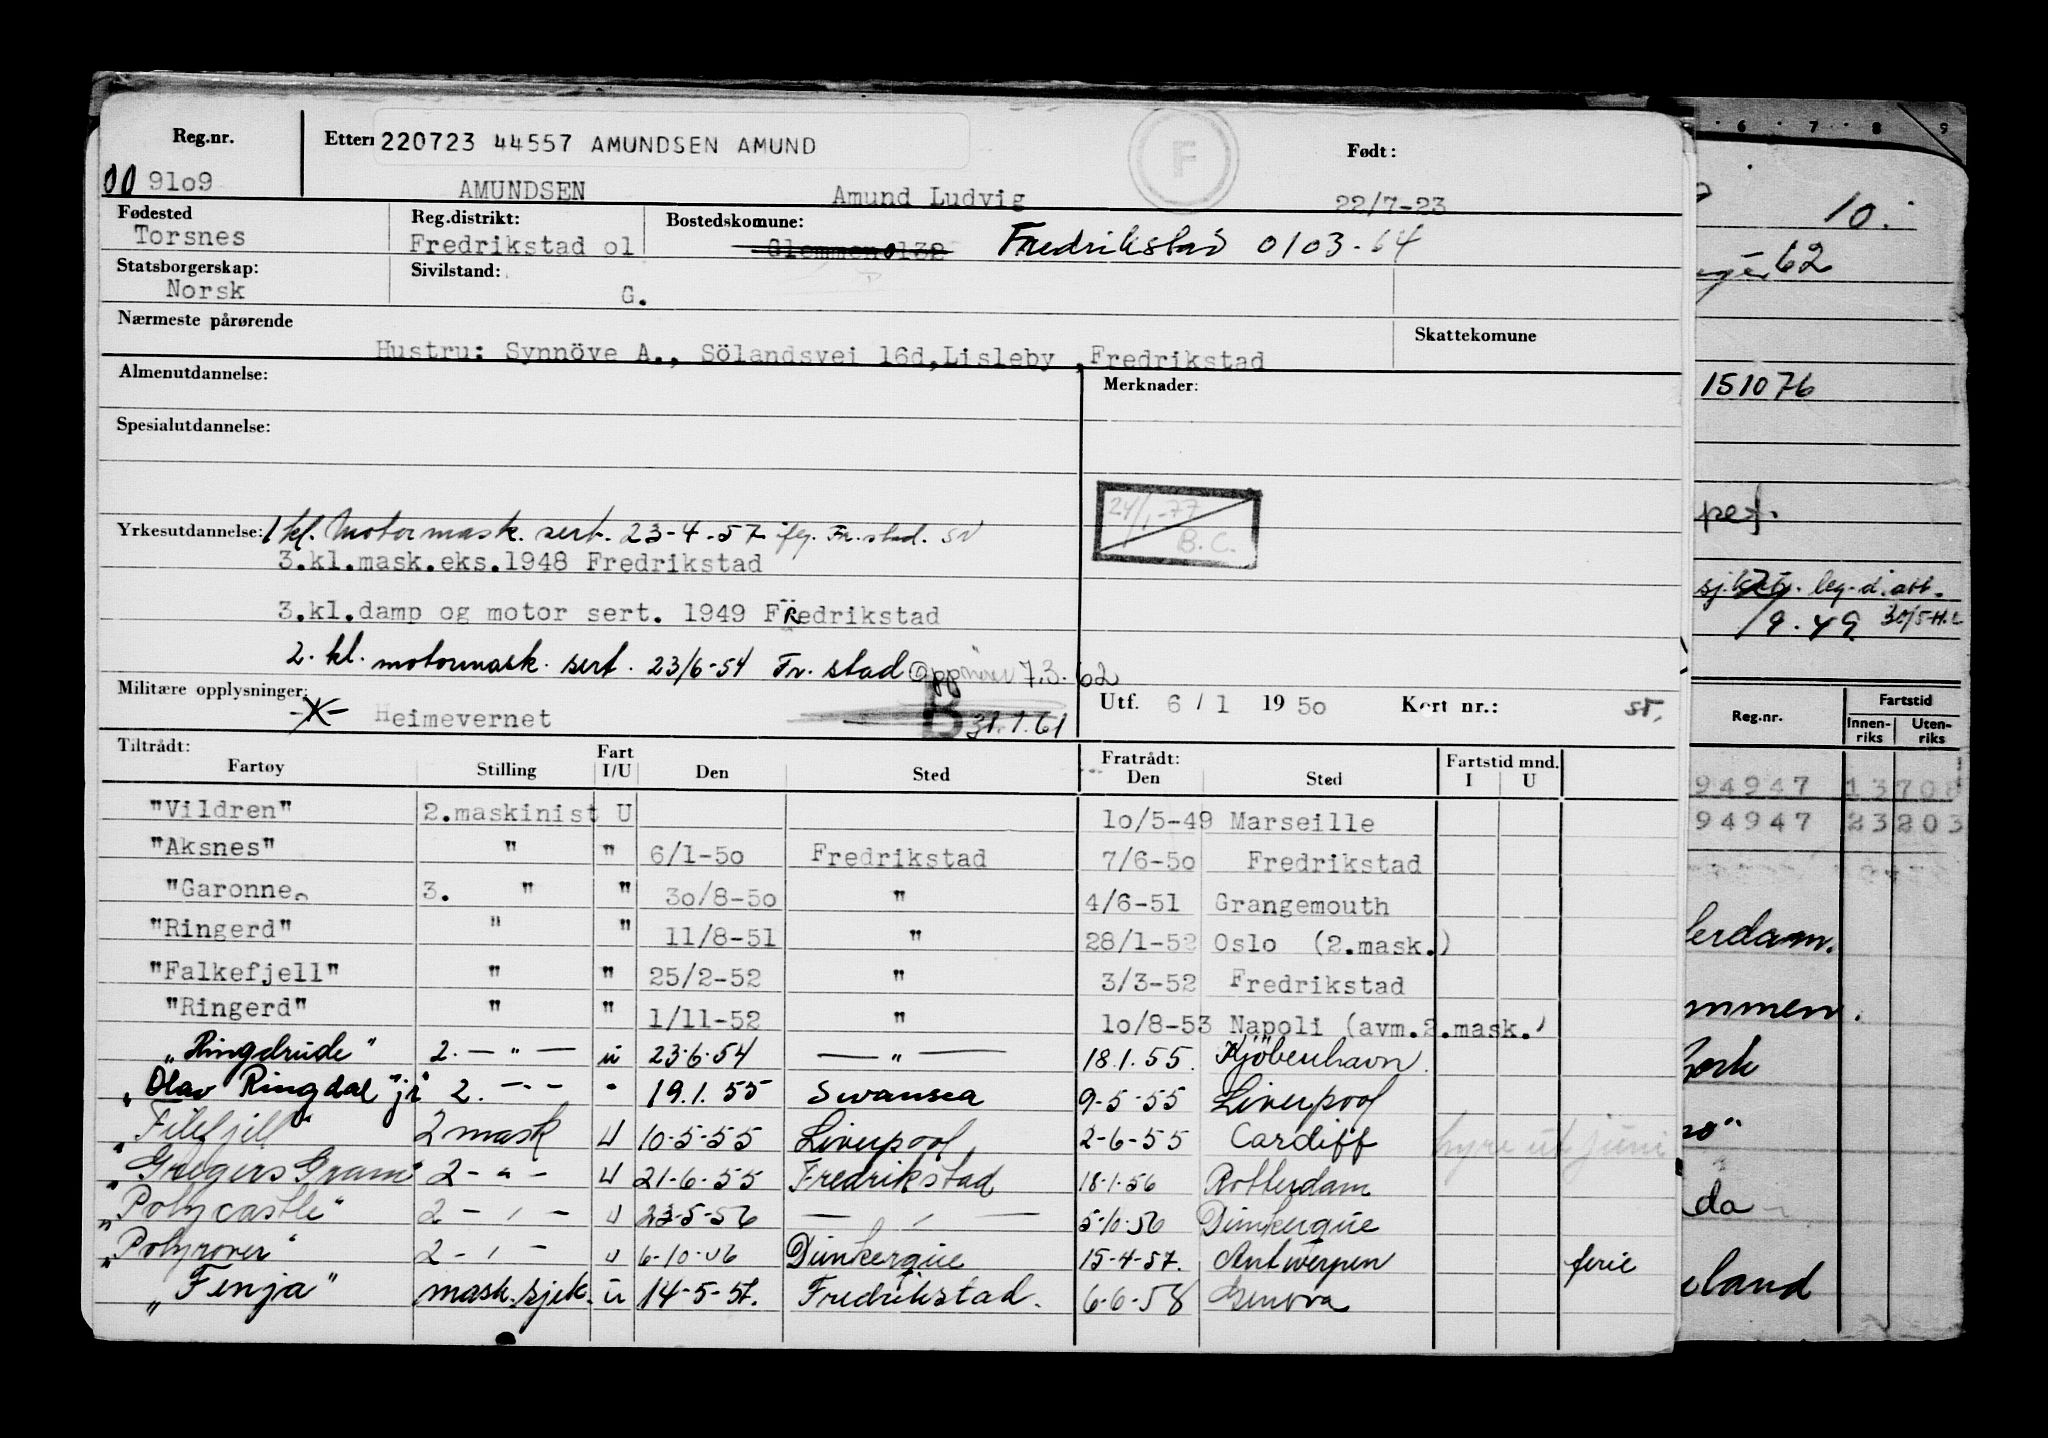 Reg.nr. Ettern 220723 44557 AMUNDSEN AMUND F Født:
00 9lo9 AMUNDSEN Amund Ludvig 22/7-23
Fødested Reg.distrikt: Bostedskomune:
Torsnes Fredrikstad ol Glemmen 0132 Fredrikstad 0103-64
Statsborgerskap: Sivilstand:
Norsk G.
Nærmeste pårørende Skattekomune
Hustru: Synnöve A., Sölandsvei 16d,Lisleby ,Fredrikstad
Almenutdannelse: Merknader:
Spesialutdannelse:
24/1-77
B.C.
Yrkesutdannelse: 1 kl. Motormask. sert. 23-4-57 Fr.stad.
3.kl.mask.eks.1948 Fredrikstad
3.kl.damp og motor sert. 1949 Fredrikstad
2. kl. motormask. sert. 23/6-54 Fr. stad 7.3.62
Militære opplysninger: Utf. 6/1 1950 Kort nr.: ST.
-X- Heimevernet B 31.1.61
Tiltrådt: Fratrådt: Fartstid mnd.
Fartøy Stilling Fart I/U Den Sted Den Sted I U
"Vildren" 2.maskinist U lo/5-49 Marseille
"Aksnes" " " 6/1-5o Fredrikstad 7/6-5o Fredrikstad
"Garonne" 3. " " 3o/8-5o " 4/6-51 Grangemouth
"Ringerd" " " 11/8-51 " 28/1-52 Oslo (2.mask.)
"Falkefjell" " " 25/2-52 " 3/3-52 Fredrikstad
"Ringerd" " " 1/11-52 " lo/8-53 Napoli (avm.2.mask.)
"Ringdrude" 2. — " — u 23.6.54 — " — 18.1.55. Kjöbenhavn
"Olav Ringdal" jr 2. - " - " 19.1.55 Swansea 9-5-55 Liverpool
"Filefjell" 2 mask U 10-5-55 Liverpool 2-6-55 Cardiff hyre ut juni
"Gregers Gram" 2 - " - U 21-6-55 Fredrikstad 18-1-56 Rotterdam
"Polycastle" 2 - , - U 23-5-56 — , — 5-10-56 Dunkerque
"Polyrover" 2 - , - U 6-10-56 Dunkerque 15-4-57. Antwerpen ferie
"Fenja" mask.sjek. u 14-5-57. Fredrikstad. 6-6-58 Genova
6 7 8 9
10.
62
151076
pet.
leg.d.att.
19.49 30/5-H.L
Reg.nr. Fartstid
Innen-riks Uten-riks
94947 13708
94947 23203
erdam.
mmen.
da
land